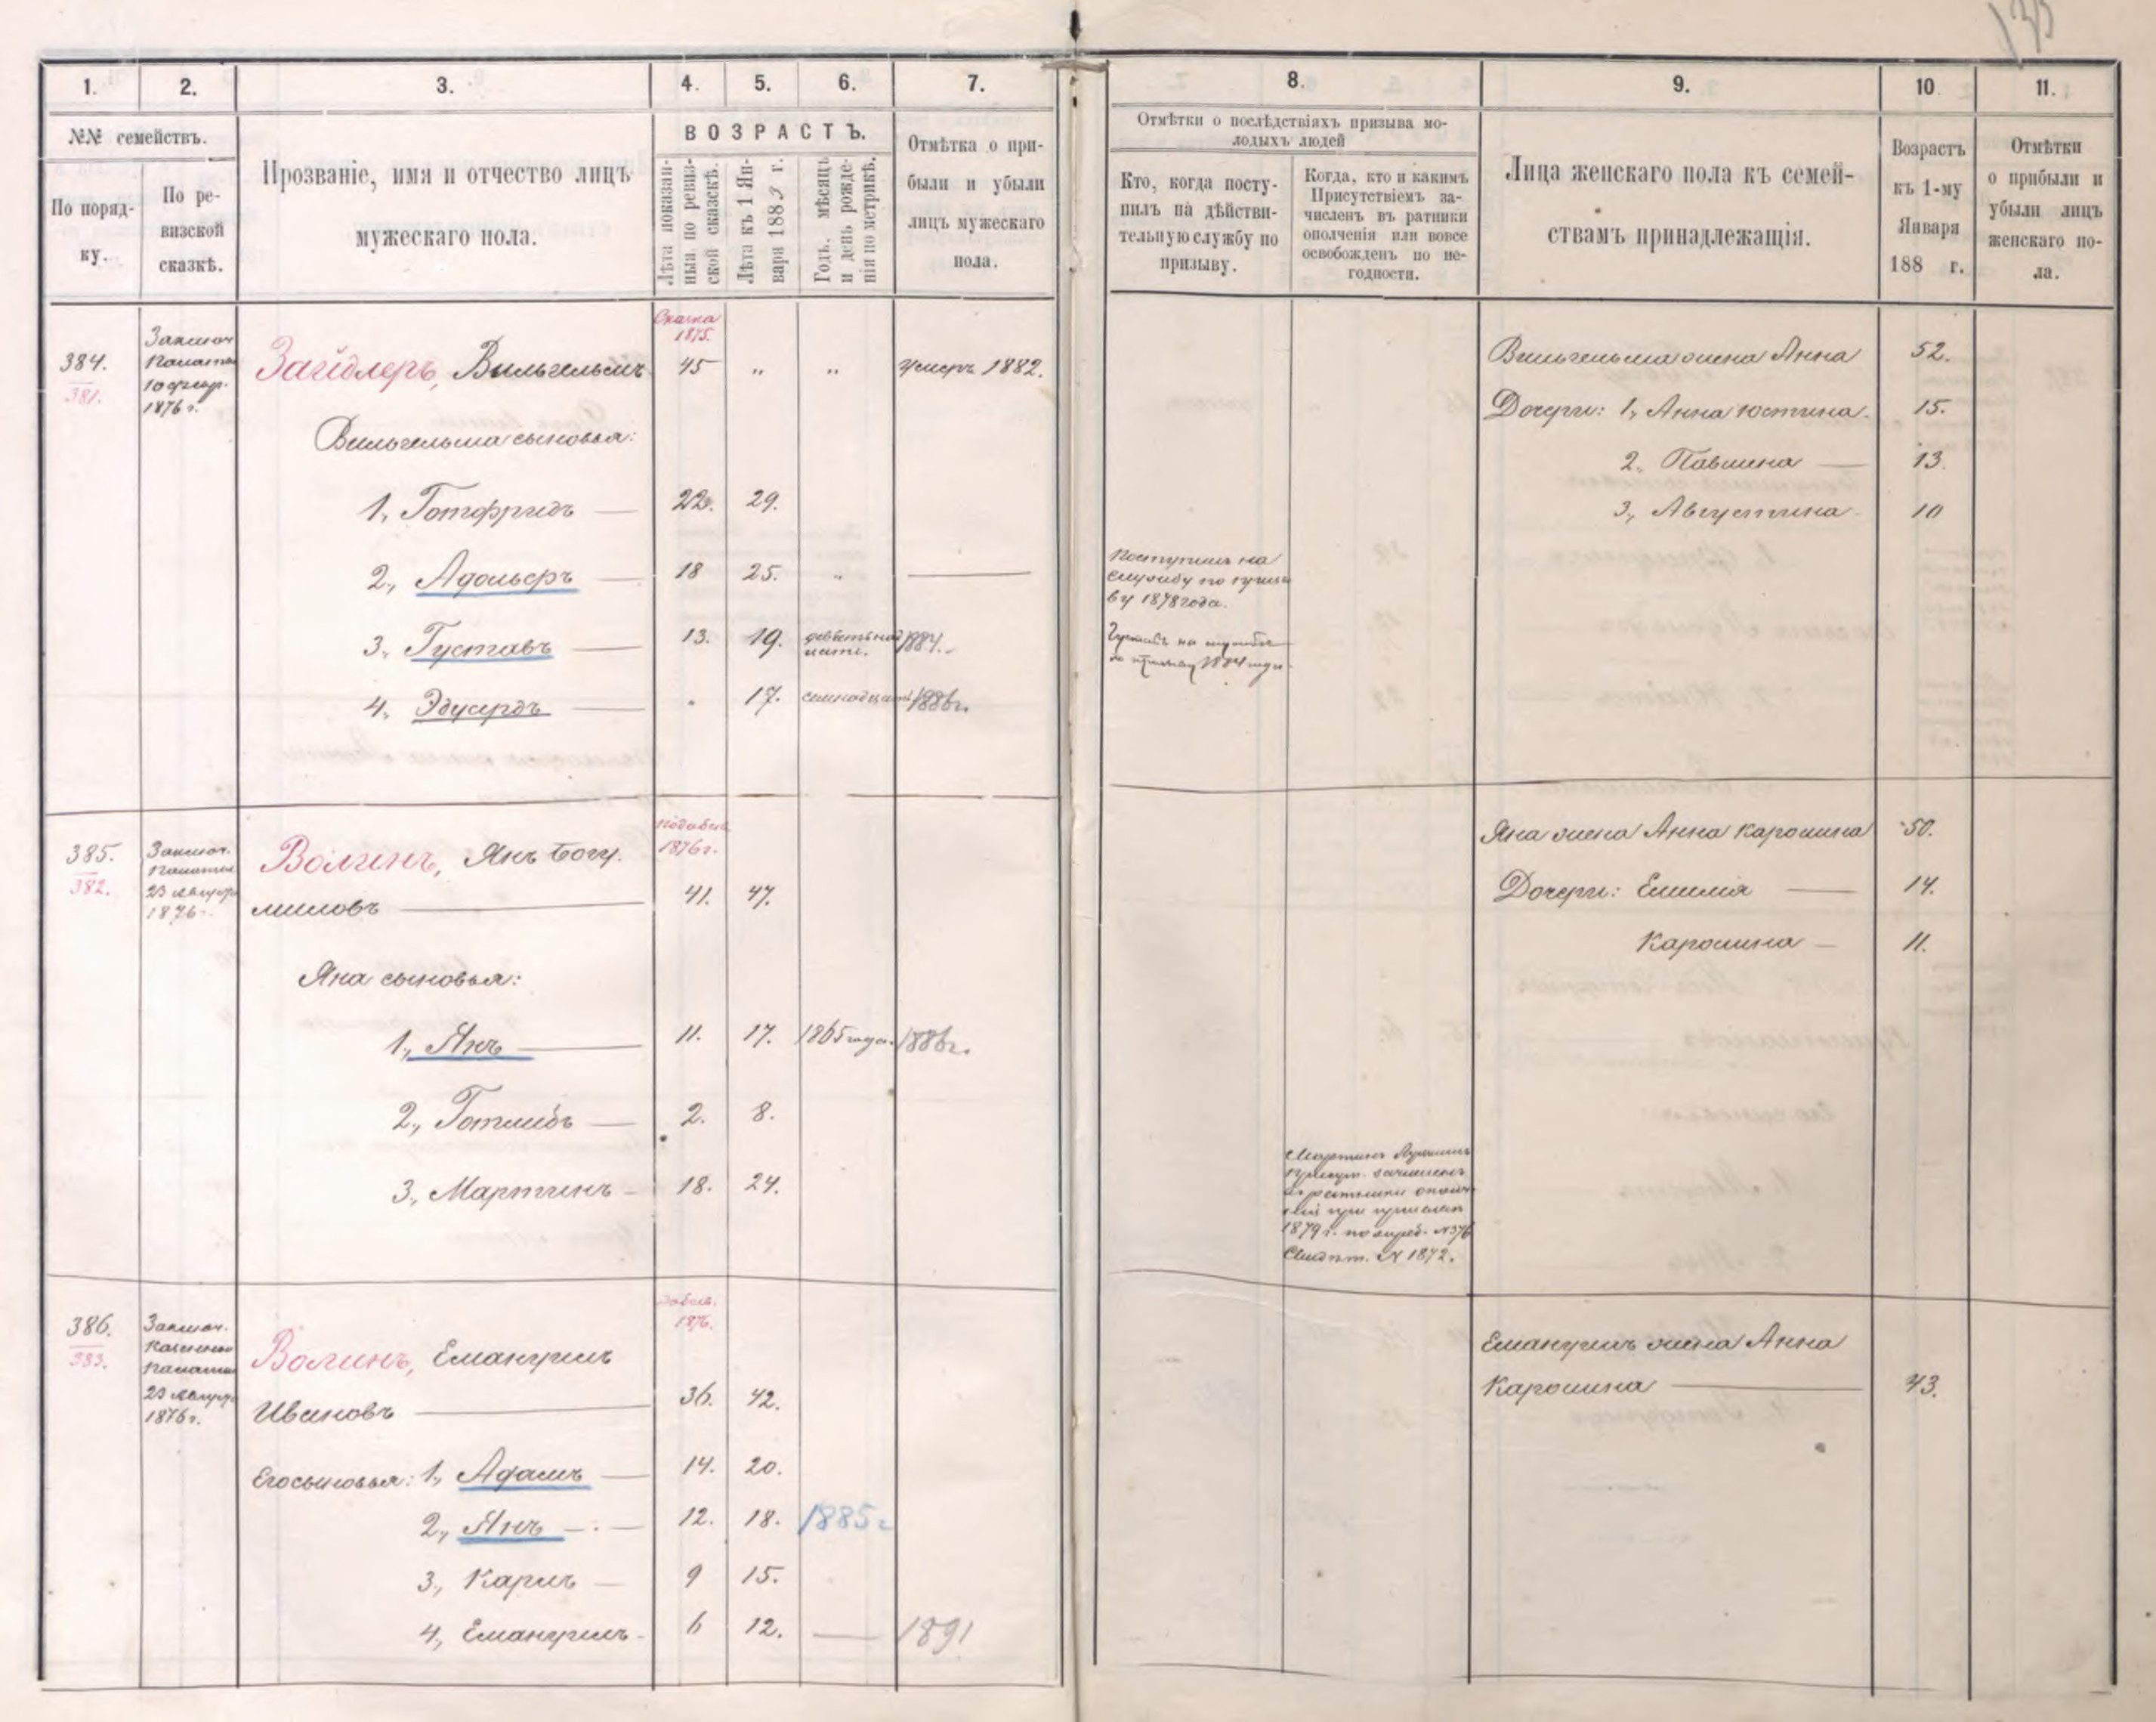 135
1.
2.
3.
4.
5.
6.
7.
№№ семействъ.
По поряд-
ку.
По ре-
визской
сказкѣ.
Прозваніе, имя и отчество лицъ
мужескаго пола.
ВОЗРАСТЪ.
Лѣта показан-
ныя по ревиз-
ской сказскѣ.
Лѣта къ 1 Ян-
варя 1883 г.
Годъ, мѣсяцъ
и день рожде-
нія по метрикѣ.
Отмѣтка о при-
были и убыли
лицъ мужескаго
пола.
384.
381.
Заключ.
Палаты
10 февр.
1876 г.
Сказка
1875.
Зайдлеръ, Вильгельмъ 45 " " умеръ 1882.
Вильгельма сыновья:
1, Готфридъ — 22. 29.
2., Адольфъ — 18 25. " —
3, Густавъ — 13. 19. девятнад
цати. 1884.
4, Эдуардъ — 17. семнадцати 1886г.
385.
382.
Заключ.
Палаты
23 Августа
1876 г.
1876 г.
Волинъ, Янъ Богу-
миловъ — 41. 47.
Яна сыновья:
1., Янъ — 11. 17. 1865 года. 1886г.
2., Готлибъ — 2. 8.
3., Мартинъ - 18. 24.
386.
383.
Заключ.
Казенной
Палаты
23 Августа
1876 г.
1876.
Волинъ, Емануилъ
Ивановъ — 36. 42.
Его сыновья: 1., Адамъ — 14. 20.
2., Янъ — 12. 18. 1885г
3., Карлъ — 9 15.
4., Емануилъ - 6 12. — 1891
8.
9.
10.
11.
Отмѣтки о послѣдствіахъ призыва мо-
лодыхъ людей
Кто, когда посту-
пилъ на дѣйстви-
тельную службу по
призыву.
Когда, кто и какимъ
Присутствіемъ за-
численъ въ ратники
ополченія или вовсе
освобожденъ по не-
годности.
Лица женскаго пола къ семей-
ствамъ принадлежащія.
Возрастъ
къ 1-му
Января
188 г.
Отмѣтки
о прибыли и
убыли лицъ
женскаго по-
ла.
Вильгельма жена Анна 52.
Дочери: 1, Анна Юстина. 15.
2., Павлина — 13.
3., Августина - 10
Поступилъ на
службу по призы
ву 1878 года.
на службе
по призыву 1884 года
Яна жена Анна Каролина 50.
Дочери: Емилія — 14.
Каролина — 11.
Мартинъ
присут. зачисленъ
въ ратники ополч
при призыве
1879 г. по №376
Свидѣт. № 1872.
Емануилъ жена Анна
Каролина — 43.